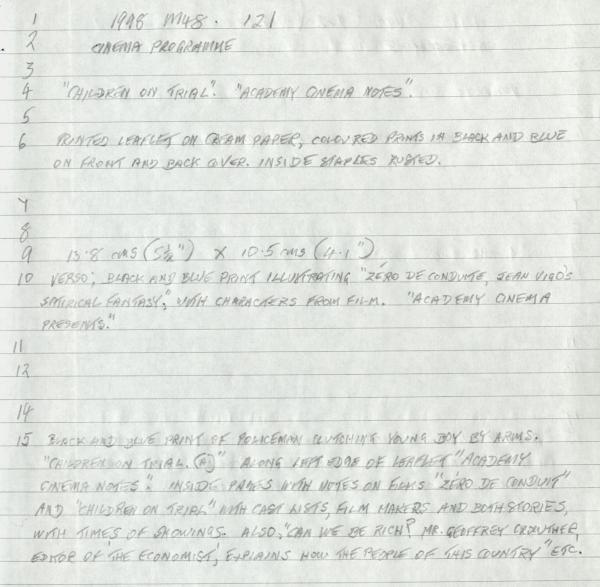 1 1998 M48. 121
2 CINEMA PROGRAMME
3
4 "CHILDREN ON TRIAL". "ACADEMY CINEMA NOTES".
5
6 PRINTED LEAFLET ON CREAM PAPER, COLOURED PRINTS IN BLACK AND BLUE
ON FRONT AND BACK COVER. INSIDE STAPLES RUSTED.
7
8
9 13.8 cms (5½") x 10.5 cms (4.1")
10 VERSO; BLACK AND BLUE PRINT ILLUSTRATING "ZÉRO DE CONDUITE, JEAN VIGO'S
SATIRICAL FANTASY," WITH CHARACTERS FROM FILM. "ACADEMY CINEMA
PRESENTS."
11
12
14
15 BLACK AND BLUE PRINT OF POLICEMAN CLUTCHING YOUNG BOY BY ARMS.
"CHILDREN ON TRIAL. (A)" ALONG LEFT EDGE OF LEAFLET "ACADEMY
CINEMA NOTES". INSIDE PAGES WITH NOTES ON FILMS "ZÉRO DE CONDUIT"
AND "CHILDREN ON TRIAL" WITH CAST LISTS, FILM MAKERS AND BOTH STORIES,
WITH TIMES OF SHOWINGS. ALSO, "CAN WE BE RICH? MR. GEOFFREY CROWTHER,
EDITOR OF 'THE ECONOMIST', EXPLAINS HOW THE PEOPLE OF THIS COUNTRY" ETC.